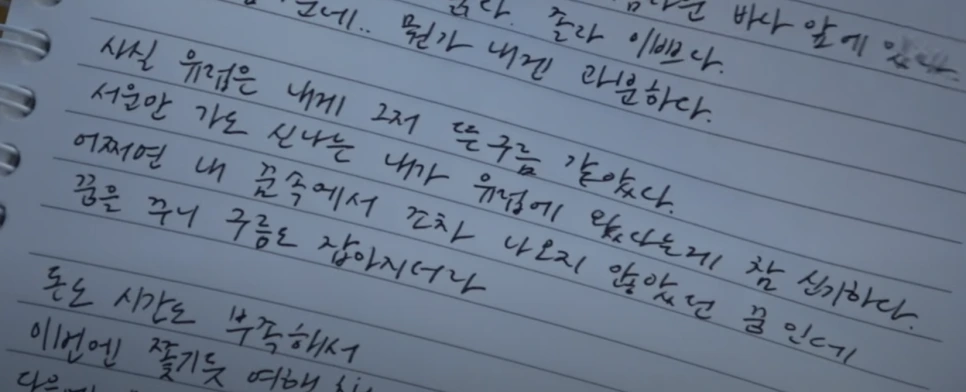 바다 앞에 있다.
졸라 이쁘다.
뭔가 내겐 과분하다.
사실 유럽은 내게 그저 뜬구름 같았다.
서울만 가도 신나는 내가 유럽에 왔다는게 참 신기하다.
어쩌면 내 꿈속에서 조차 나오지 않았던 꿈인데
꿈을 꾸니 구름도 잡아지더라
돈도 시간도 부족해서
이번엔 쫓기듯 여행